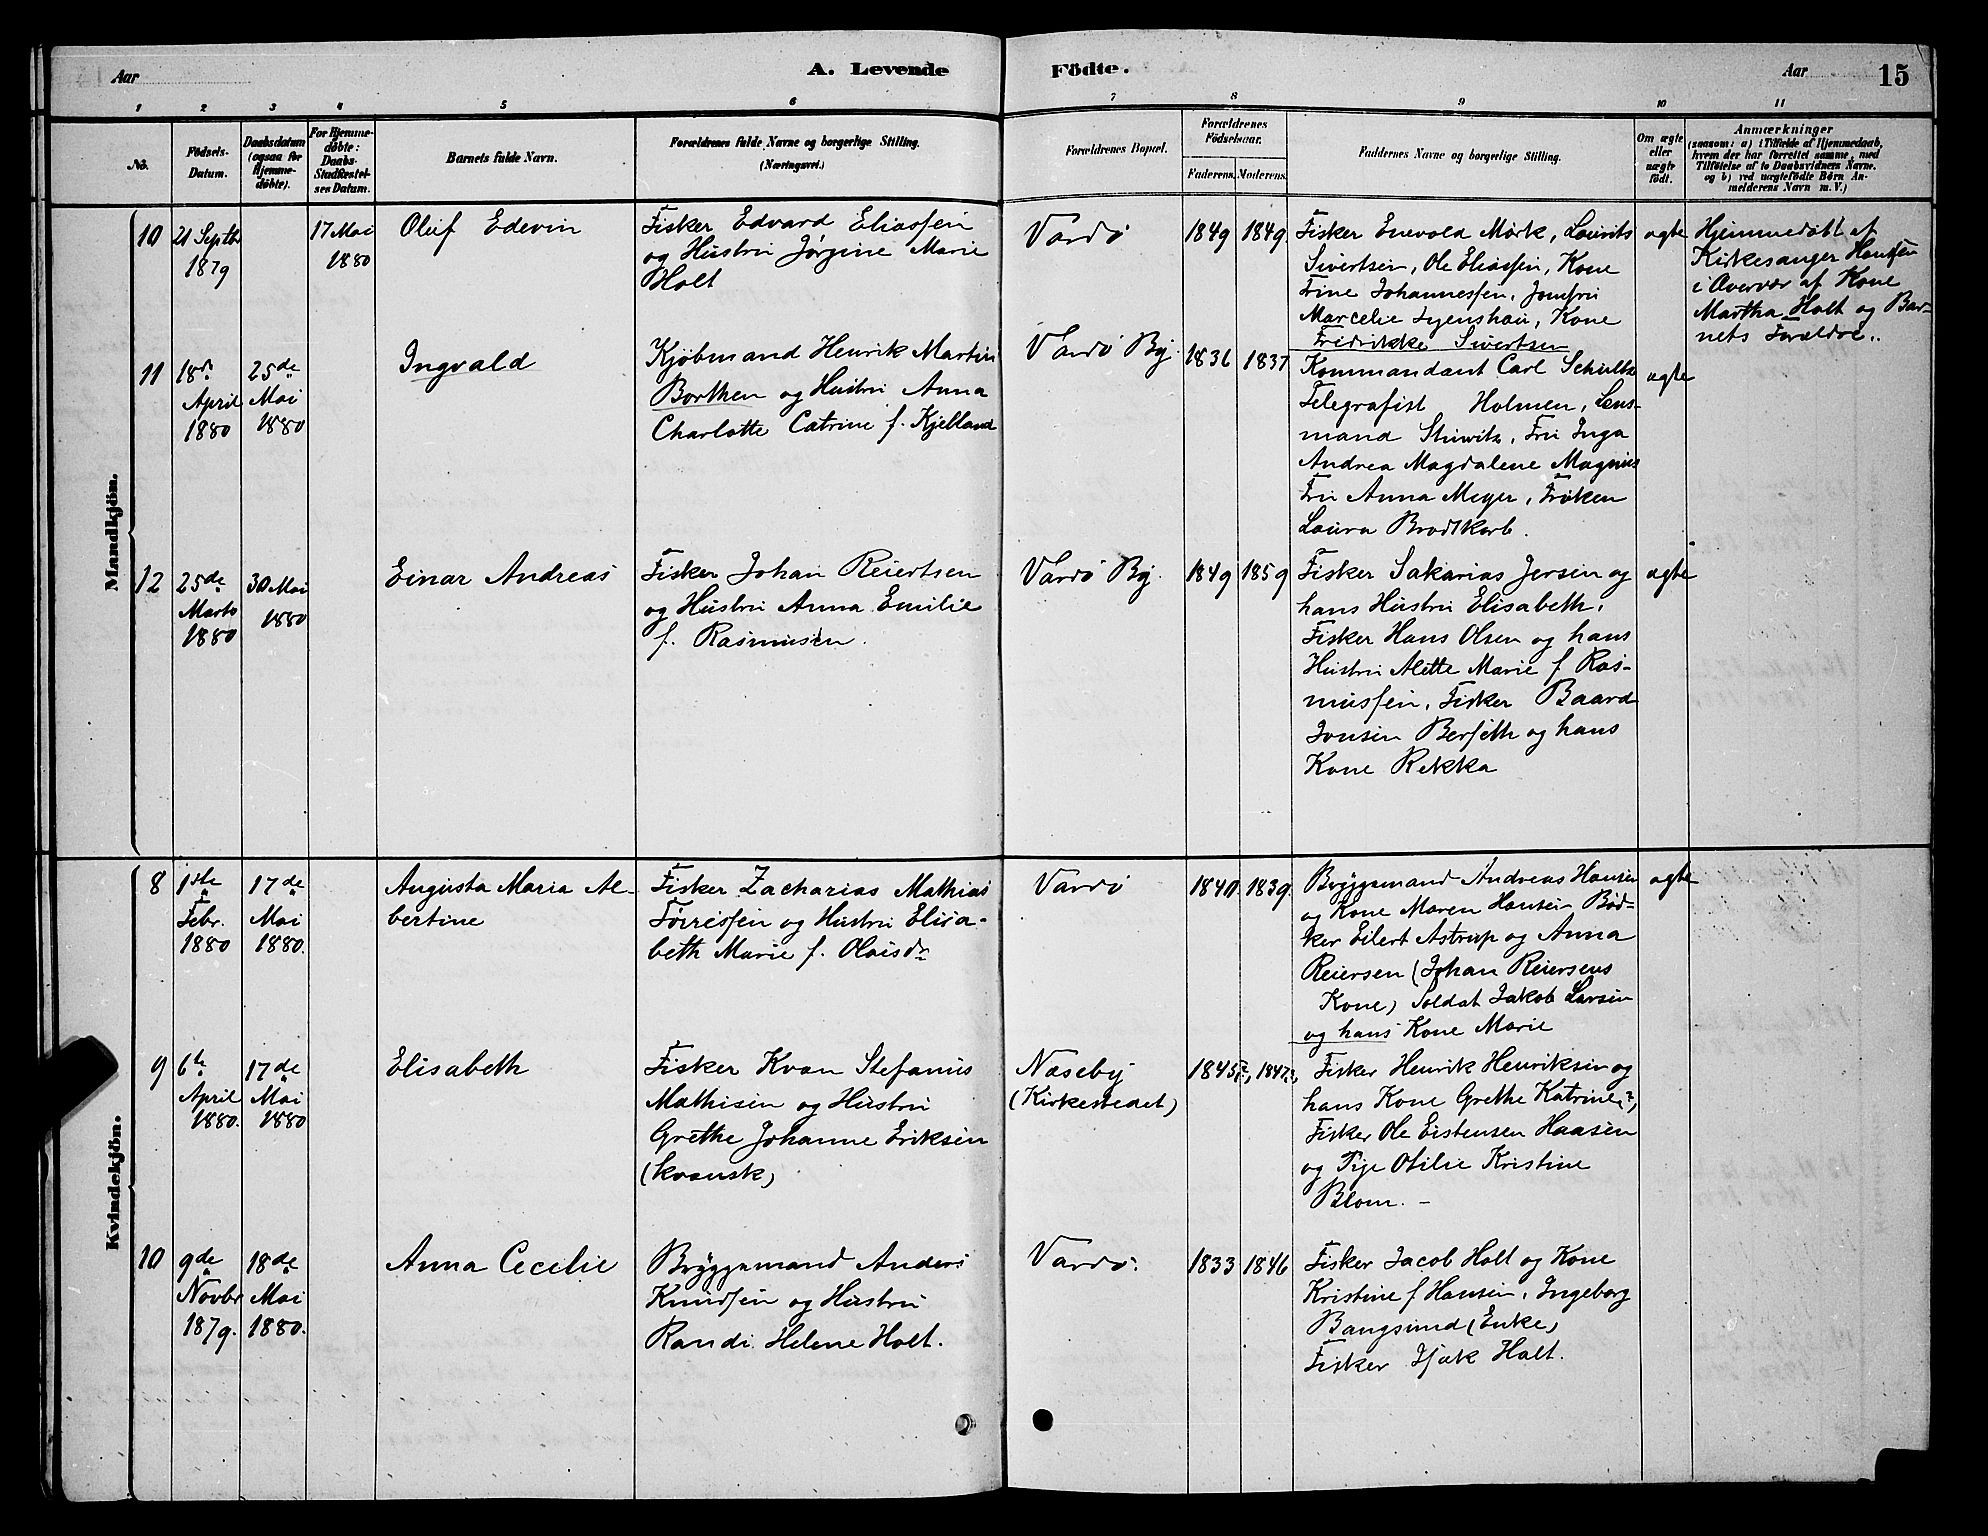 Aar
A. Levende
Födte.
Aar
15
1 2 3 4 5 6 7 8 9 10 11
No.
Födsels-
Datum.
Daabsdatum
(ogsaa for
Hjemme-
döbte).
For Hjemme-
döbte:
Daabs-
Stadfæstel-
ses Datum.
Barnets fulde Navn.
Forældrenes fulde Navne og borgerlige Stilling.
(Næringsvei.)
Forældrenes Bopæl.
Forældrenes
Födselsaar.
Faderens.
Moderens.
Faddernes Navne og borgerlige Stilling.
Om ægte
eller
uægte
födt.
Anmærkninger
(saasom: a) i Tilfælde af Hjemmedaab,
hvem der har forrettet samme, med
Tilföielse af to Daabsvidners Navne,
og b) ved uægtefödte Börn An-
melderens Navn m. V.)
Mandkjön.
10
21 Septb
1879
17 Mai
1880
Oluf Edevin
Fisker Edvard Eliassen
og Hustru Jørgine Marie
Holt
Vardö
1849
1849
Fisker Enevold Mörk, Lourits
Sivertsen, Ole Eliassen, Kone
Trine Johannessen, Jomfru
Marcelie, Kone
Fredrikke Sivertsen
ægte
Hjemmedöbt af
Kirkesanger Hansen
i Overvær af Kone
Martha Holt og Bar-
nets Forældre.
11
18de
April
1880
25de
Mai
1880
Ingvald
Kjöbmand Henrik Martin
Borthen og Hustru Anna
Charlotte Catrine f. Kjelland
Vardö By
1836
1837
Kommandant Carl Schultz
Telegrafist Holmen, Lens-
mand, Fru Inga
Andrea Magdalene Magnus
Fru Anna Meyer, Fröken
Laura Brodtkorb.
ægte
12
25de
Marts
1880
30 Mai
1880
Einar Andreas
Fisker Johan Reiertsen
og Hustru Anna Emilie
f. Rasmussen.
Vardö By.
1849
1859
Fisker Sakarias Jersen og
hans Hustru Elisabeth,
Fisker Hans Olsen og hans
Hustru Alette Marie f. Ras-
mussen, Fisker Baard
Jonsen Berseth og hans
Kone Rekka
ægte
Kvindekjön.
8
1ste
Febr.
1880
17de
Mai
1880.
Augusta Maria Al-
bertine
Fisker Zacharias Mathias
Törressen og Hustru Elisa-
beth Marie f. Olaisdr
Vardö
1840
1839
Bryggemand Andreas Hansen
og Kone Maren Hansen Bød-
ker Eilert Astrup og Anna
Reiersen (Johan Reiersens
Kone) Soldat Jakob Larsen
og hans Kone Marie
ægte
9
6te
April
1880.
17de
Mai
1880
Elisabeth
Fisker Kvæn Stefanus
Mathisen og Hustru
Grethe Johanne Eriksen
(kvænsk)
Næseby
(Kirkestedet)
1845?,
1847?,
Fisker Henrik Henriksen og
hans Kone Grethe Katrine?,
Fisker Ole Eistensen Haasen
og Pige Otilie Kristine
Blom. –
10
9de
Novbr
1879.
18de
Mai
1880.
Anna Cecilie
Bryggemand Anders
Knudsen og Hustru
Randi Helene Holt.
Vardö.
1833
1846
Fisker Jacob Holt og Kone
Kristine f Hansen, Ingeborg
Bangsund (Enke)
Fisker Isak Holt.